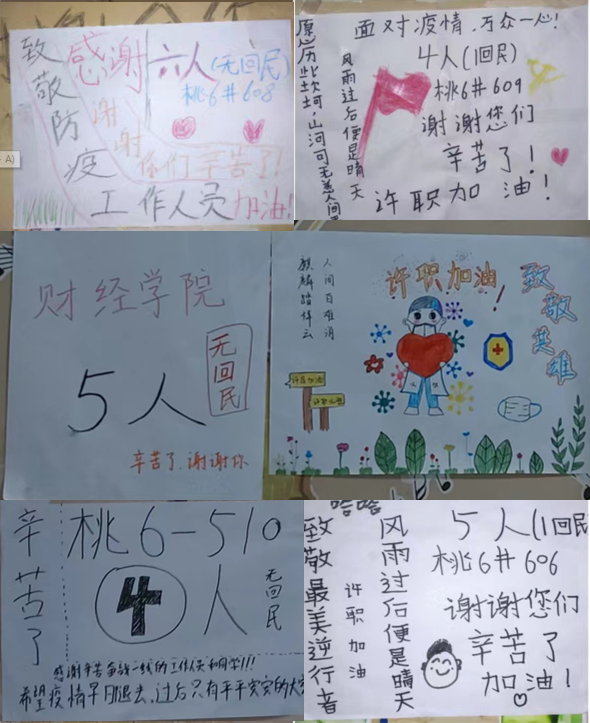 致敬防疫
感谢
六人(无回民)
桃6#608
谢谢
你们辛苦了!
工作人员加油!
A)
面对疫情,万众一心!
4人(1回民)
桃6#609
谢谢您们
辛苦了!
许职加油!
风雨过后便是晴天
愿历此坎坷,山河可无恙人间
财经学院
5人
无回民
辛苦了,谢谢你
人间百难消
麒麟踏祥云
许职加油!
致敬英雄
许职加油
辛苦了
桃6-510
4人
无回民
感谢辛苦奋战一线的工作人员和同学!!!
希望疫情早日退去,过后只有平平实实的大
哈哈
致敬最美逆行者
许职加油
风雨过后便是晴天
5人(1回民
桃6#606
谢谢您们
辛苦了
加油!